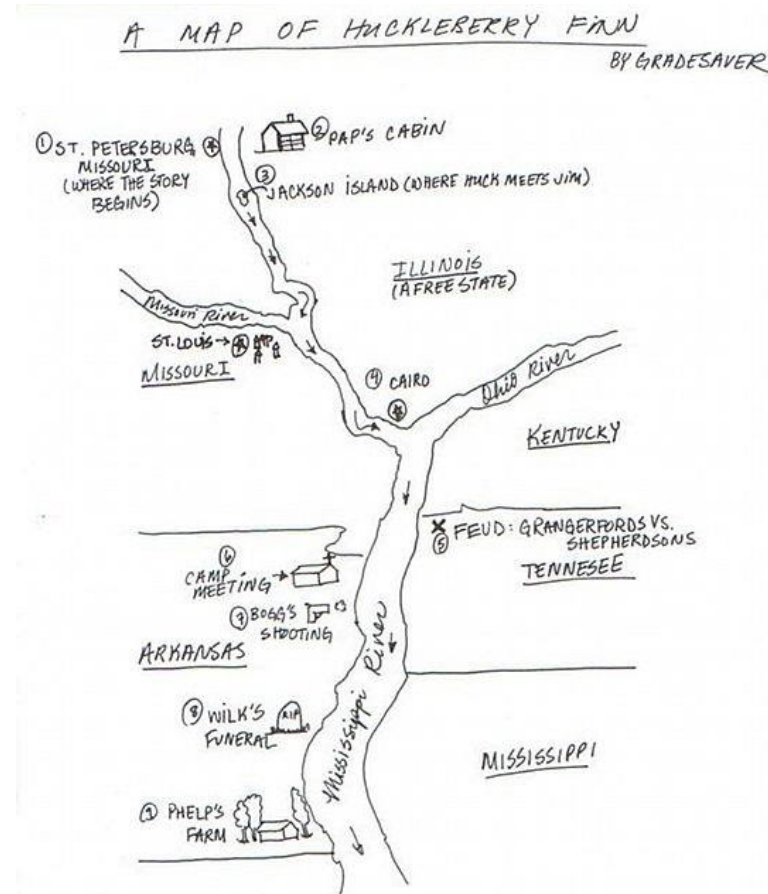 A MAP OF HUCKLEBERRY FINN
BY GRADESAVER
① ST. PETERSBURG,
MISSOURI
(WHERE THE STORY
BEGINS)
② PAP'S CABIN
③
JACKSON ISLAND (WHERE HUCK MEETS JIM)
ILLINOIS
(A FREE STATE)
Missouri River
ST. LOUIS →
MISSOURI
④ CAIRO
Ohio River
KENTUCKY
X FEUD: GRANGERFORDS VS.
⑤ SHEPHERDSONS
TENNESEE
⑥
CAMP
MEETING
⑦ BOGG'S
SHOOTING
ARKANSAS
Mississippi River
⑧ WILK'S
FUNERAL
RIP
MISSISSIPPI
⑨ PHELP'S
FARM